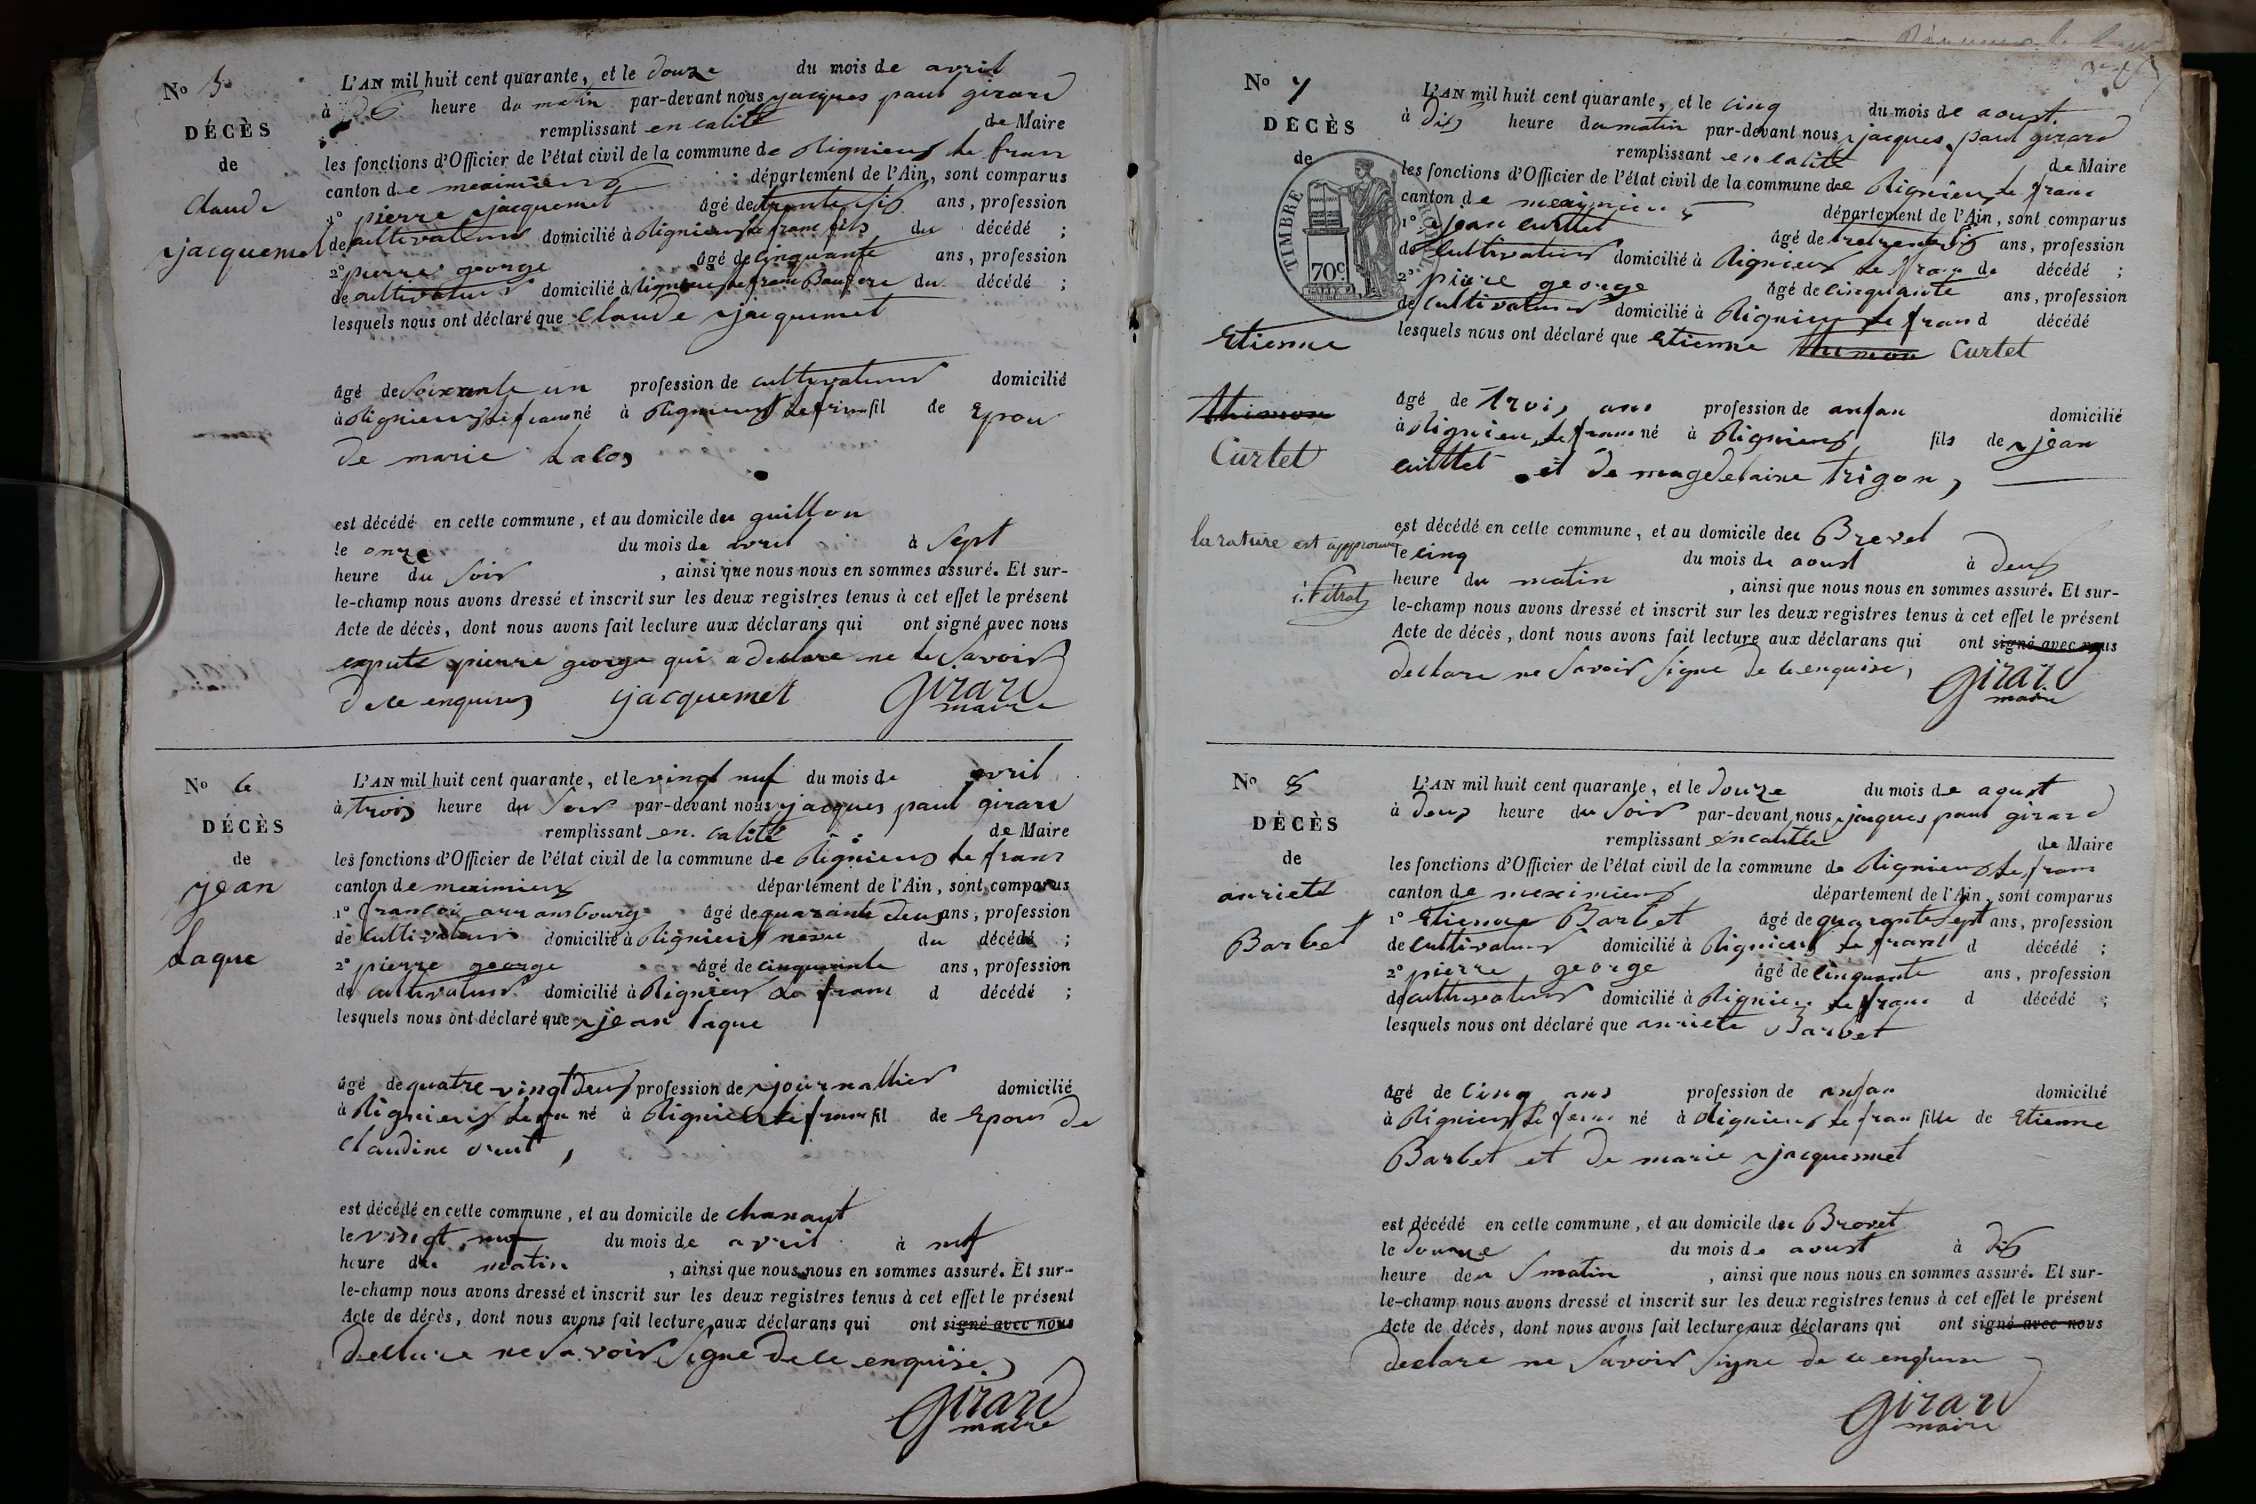 No 5
L'AN mil huit cent quarante, et le douze du mois de avril
à heure du matin par-devant nous jacques paul girard
DÉCÈS
remplissant en calité de Maire
de
les fonctions d'Officier de l'état civil de la commune de Rignieux le fran
canton de meximieux département de l'Ain, sont comparus
Claude
1° pierre jacquemet âgé de trente six ans, profession
jacquemet
de cultivateur domicilié à Rignieux le franc fils du décédé ;
2° pierre george âgé de cinquante ans, profession
de cultivateur domicilié à Rignieux le franc du décédé ;
lesquels nous ont déclaré que Claude jacquemet
âgé de soixante un profession de cultivateur domicilié
à Rignieux le franc né à Rignieux le fran fil de Epou
de marie
est décédé en cette commune, et au domicile du guillon
le onze du mois de avril à sept
heure du soir , ainsi que nous nous en sommes assuré. Et sur-
le-champ nous avons dressé et inscrit sur les deux registres tenus à cet effet le présent
Acte de décès, dont nous avons fait lecture aux déclarans qui ont signé avec nous
expute pierre george qui a declare ne le savoir
de ce enquires jacquemet girard
maire
No 6
L'AN mil huit cent quarante, et le vingt nuf du mois de avril
à trois heure du soir par-devant nous jacques paul girard
DÉCÈS
remplissant en calité de Maire
de
les fonctions d'Officier de l'état civil de la commune de Rignieux le franc
jean
canton de meximieux département de l'Ain, sont comparus
1° francoi âgé de quarante deux ans, profession
laque
de cultivateur domicilié à Rignieux neveu du décédé ;
2° pierre george âgé de cinquante ans, profession
de cultivateur domicilié à Rignieux le franc d décédé ;
lesquels nous ont déclaré que jean laque
âgé de quatre vingt deux profession de journallier domicilié
à Rignieux le fra né à Rignieux le franc fil de Epoux de
Claudine
est décédé en cette commune, et au domicile de chanaut
le vingt nuf du mois de avril à nuf
heure du matin , ainsi que nous nous en sommes assuré. Et sur-
le-champ nous avons dressé et inscrit sur les deux registres tenus à cet effet le présent
Acte de décès, dont nous avons fait lecture aux déclarans qui ont signé avec nous
declare ne savoir signe de ce enquise
girard
maire
No 7
L'AN mil huit cent quarante, et le cinq du mois de aoust
à dix heure du matin par-devant nous jacques paul girard
DÉCÈS
remplissant en calité de Maire
de
les fonctions d'Officier de l'état civil de la commune de Rignieux le franc
canton de meximieux département de l'Ain, sont comparus
TIMBRE ROYAL
70c
1° jean curttet âgé de trente six ans, profession
de cultivateur domicilié à Rignieux le franc de décédé ;
2° piere george âgé de cinquante ans, profession
de cultivateur domicilié à Rignieux le fran d décédé
Etienne
lesquels nous ont déclaré que Etienne thimon Curtet
thimon
âgé de trois ans profession de anfan domicilié
à Rignieux le franc né à Rignieux fils de jean
Curtet
curttet et de magdelaine trigon,
la rature est approuvée
est décédé en cette commune, et au domicile du Brevet
le cinq du mois de aoust à deux
heure du matin , ainsi que nous nous en sommes assuré. Et sur-
le-champ nous avons dressé et inscrit sur les deux registres tenus à cet effet le présent
Acte de décès, dont nous avons fait lecture aux déclarans qui ont signé avec nous
declare ne savoir signe de ce enquise,
girard
maire
No 8
L'AN mil huit cent quarante, et le douze du mois de agust
à deux heure du soir par-devant nous jacques paul girard
DÉCÈS
remplissant en calitée de Maire
de
les fonctions d'Officier de l'état civil de la commune de Rignieux le franc
anriete
canton de meximieux département de l'Ain, sont comparus
1° Etienne Barbet âgé de quarante sept ans, profession
Barbet
de cultivateur domicilié à Rignieux le franc d décédé ;
2° pierre george âgé de cinquante ans, profession
de cultivateur domicilié à Rignieu le franc d décédé ;
lesquels nous ont déclaré que anriete Barbet
âgé de cinq ans profession de anfan domicilié
à Rignieux le franc né à Rignieux le fran fille de Etienne
Barbet et de marie jacquemet
est décédé en cette commune, et au domicile du Brovet
le douze du mois de aoust à dix
heure du matin , ainsi que nous nous en sommes assuré. Et sur-
le-champ nous avons dressé et inscrit sur les deux registres tenus à cet effet le présent
Acte de décès, dont nous avons fait lecture aux déclarans qui ont signé avec nous
declare ne savoir signe de ce enquise
girard
maire